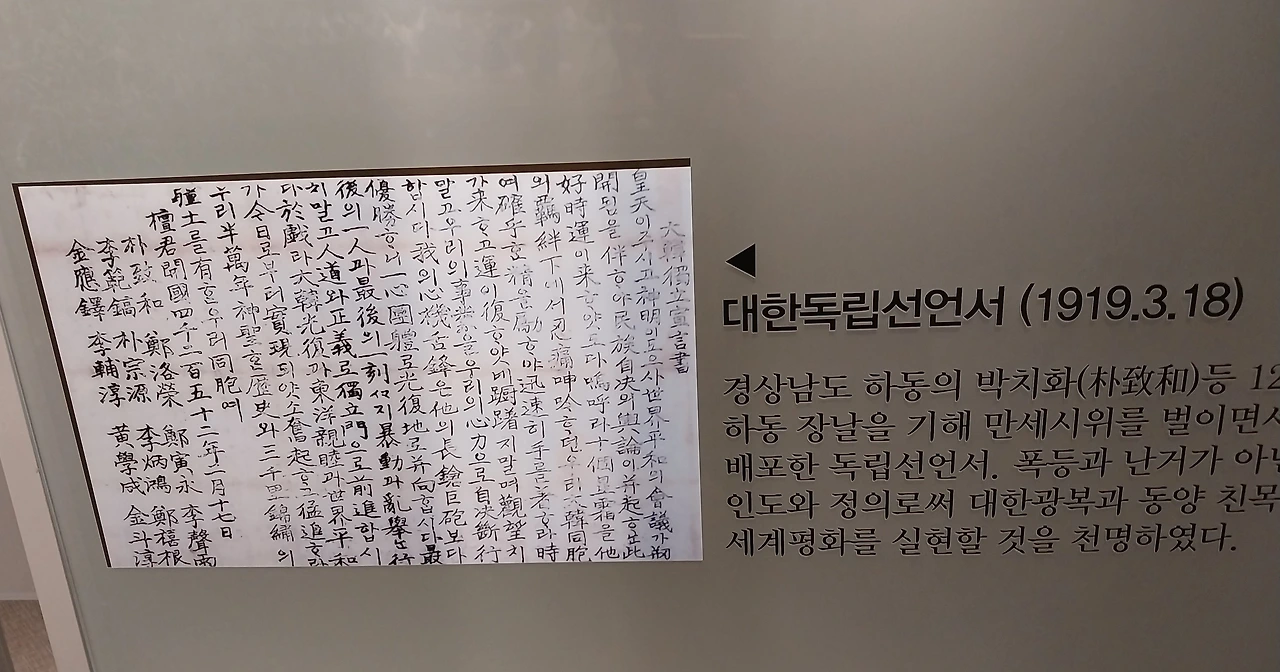 大韓獨立宣言書
皇天이주시고神明이도으사世界平和의會議가
開됨을伴하야民族自決의輿論이并起하는此
好時運이来하얏도다嗚呼라十個星霜을他
의羈絆下에서忍痛呻吟하던우리大韓同胞
여確乎한精을勵하야迅速히手를하라時
가来하고運이復하얏네躕躇지말며觀望치
말고우리의事業을우리의心力으로自決斷行
합시다我의心機舌鋒은他의長鎗巨砲보다
優勝하니一心團體로光復地로并向합시다最
後의一人과最後의一刻지暴動과亂擧는行
치말고人道와正義로獨立門으로前進합시
다於戲라大韓光復과東洋親睦과世界平和
가今日로부터實現되얏소奮起하고猛進하라
우리半萬年神聖한歷史와三千里錦繡의
疆土를有한우리同胞여
檀君開國四千二百五十二年二月十七日
朴致和 鄭洛榮 鄭寅永 李聲雨
李範鎬 朴宗源 李炳鴻 鄭禧根
金應鐸 李輔淳 黃學成 金斗淳
◀
대한독립선언서 (1919.3.18)
경상남도 하동의 박치화(朴致和)등 12
하동 장날을 기해 만세시위를 벌이면서
배포한 독립선언서. 폭등과 난거가 아닌
인도와 정의로써 대한광복과 동양 친목
세계평화를 실현할 것을 천명하였다.